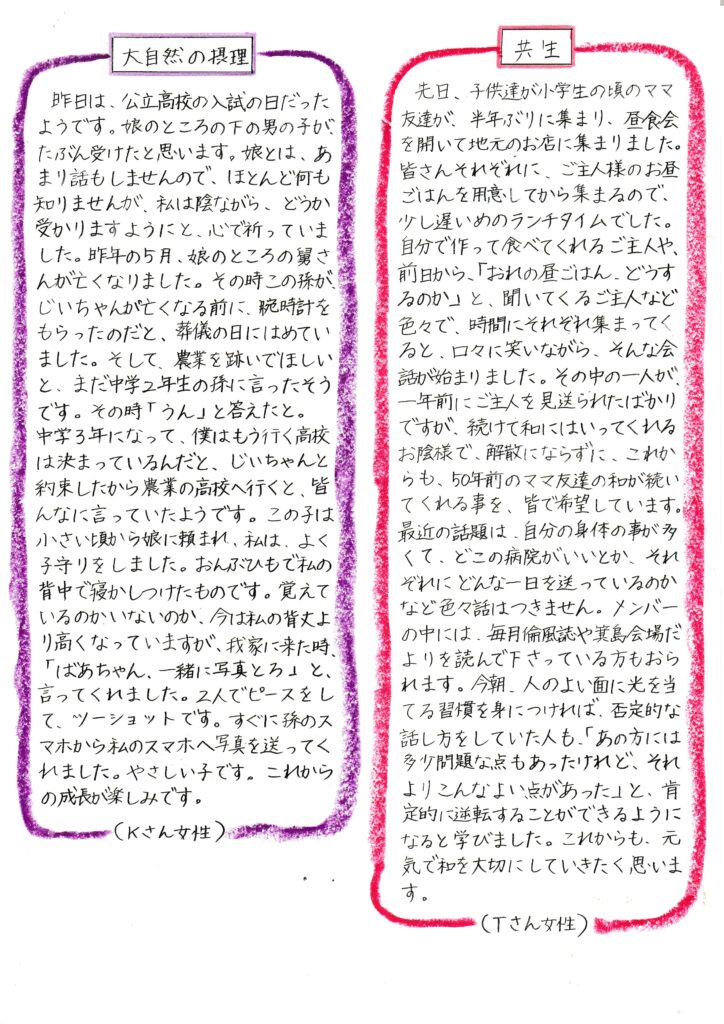 大自然の摂理
昨日は、公立高校の入試の日だった
ようです。娘のところの下の男の子が、
たぶん受けたと思います。娘とは、あ
まり話もしませんので、ほとんど何も
知りませんが、私は陰ながら、どうか
受かりますようにと、心で祈っていま
した。昨年の5月、娘のところの舅さ
んが亡くなりました。その時この孫が、
じいちゃんが亡くなる前に、腕時計を
もらったのだと、葬儀の日にはめてい
ました。そして、農業を跡いでほしい
と、まだ中学2年生の孫に言ったそう
です。その時「うん」と答えたと。
中学3年になって、僕はもう行く高校
は決まっているんだと、じいちゃんと
約束したから農業の高校へ行くと、皆
んなに言っていたようです。この子は
小さい頃から娘に頼まれ、私は、よく
子守りをしました。おんぶひもで私の
背中で寝かしつけたものです。覚えて
いるのかいないのか、今は私の背丈
より高くなっていますが、我家に来た時、
「ばあちゃん、一緒に写真とろ」と、
言ってくれました。2人でピースをし
て、ツーショットです。すぐに孫のス
マホから私のスマホへ写真を送ってく
れました。やさしい子です。これから
の成長が楽しみです。
(Kさん女性)
共生
先日、子供達が小学生の頃のママ
友達が、半年ぶりに集まり、昼食会
を開いて地元のお店に集まりました。
皆さんそれぞれに、ご主人様のお昼
ごはんを用意してから集まるので、
少し遅いめのランチタイムでした。
自分で作って食べてくれるご主人や、
前日から、「おれの昼ごはん、どうす
るのか」と、聞いてくるご主人など
色々で、時間にそれぞれ集まってく
ると、口々に笑いながら、そんな会
話が始まりました。その中の一人が、
一年前にご主人を見送られたばかり
ですが、続けて和にはいってくれる
お陰様で、解散にならずに、これか
らも、50年前のママ友達の和が続い
てくれる事を、皆で希望しています。
最近の話題は、自分の身体の事が多
くて、どこの病院がいいとか、それ
ぞれにどんな一日を送っているのか
など色々話はつきません。メンバー
の中には、毎月倫風誌や箕島会場だ
よりを読んで下さっている方もおら
れます。今朝、人のよい面に光を当
てる習慣を身につければ、否定的な
話し方をしていた人も、「あの方には
多少問題な点もあったけれど、それ
よりこんなよい点があった」と、肯
定的に逆転することができるように
なると学びました。これからも、元
気で和を大切にしていきたく思いま
す。
(Tさん女性)